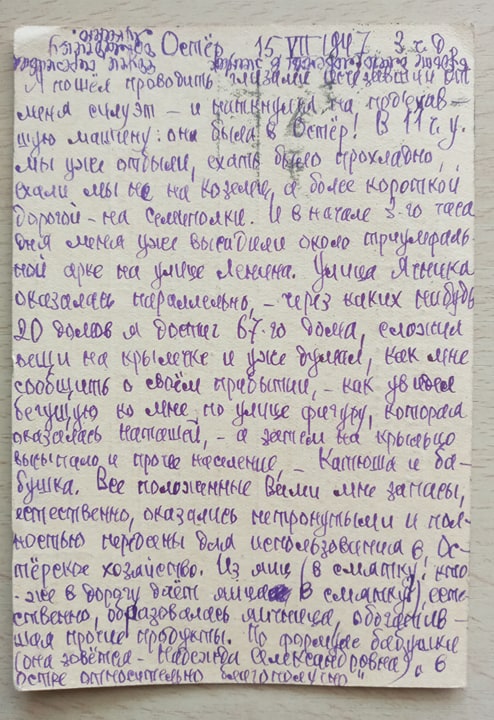 Остёр 15 VII 1947 3 ч. д.
Я пошёл проводить глазами исчезавший от
меня силуэт – и наткнулся на подъехав-
шую машину: она была в Остёр! В 11 ч. у.
мы уже отбыли, ехать было прохладно,
ехали мы не на Козелец, а более короткой
дорогой – на Семиполки. И в начале 3-го часа
дня меня уже высадили около триумфаль-
ной арке на улице Ленина. Улица
оказалась параллельно, – через каких нибудь
20 домов я достиг 67-го дома, сложил
вещи на крылечке и уже думал, как мне
сообщить о своём прибытии, – как увидел
бегущую ко мне по улице фигуру, которая
оказалась Наташей, – а затем на крыльцо
высыпало и прочее население, – Катюша и ба-
бушка. Все положенные Вами мне запасы,
естественно, оказались нетронутыми и пол-
ностью для использования в Ос-
тёрское хозяйство. Из яиц (в смятку; кто
-же в дорогу даёт яйца в смятку!), есте-
ственно, образовалась яичница, обогатив-
шая прочие продукты. По формуле бабушки
(она зовётся – Надежда Александровна), „в
Остре относительно благополучно"